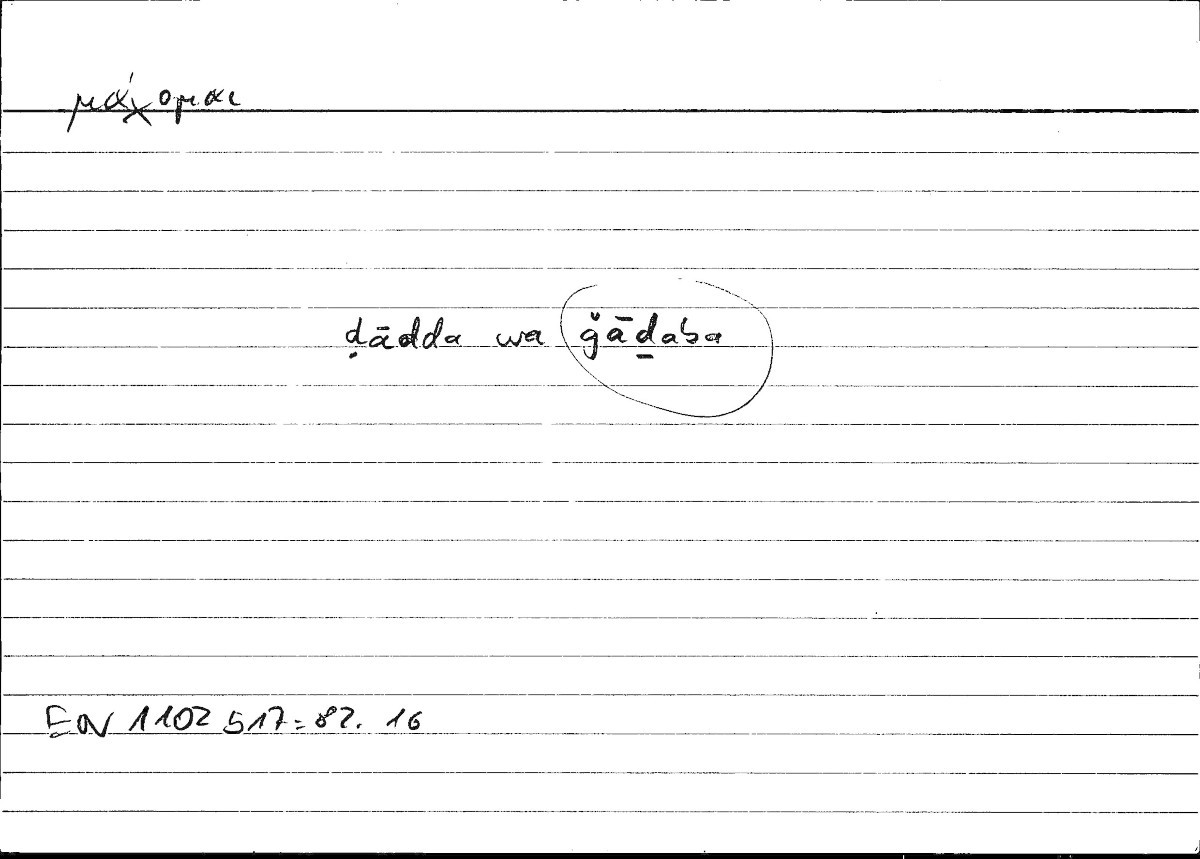 μάχομαι
ḍādda wa ǧāḏaba
EN 1102 b17 = 82. 16